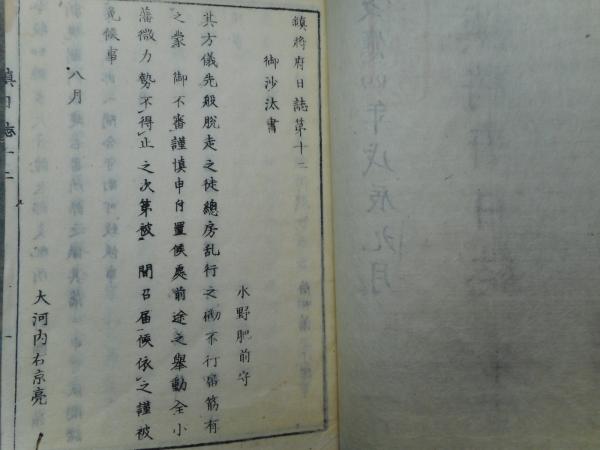 鎮將府日誌第十二
御沙汰書
水野肥前守
其方儀先般脱走之徒總房乱行之砌不行屆筋有
之蒙 御不審謹慎申付置候處前途之擧動全小
藩微力勢不得止之次第被 聞召屆候依之謹被
免候事
八月
大河内右京亮
鎮日誌十二
慶應四年戊辰九月